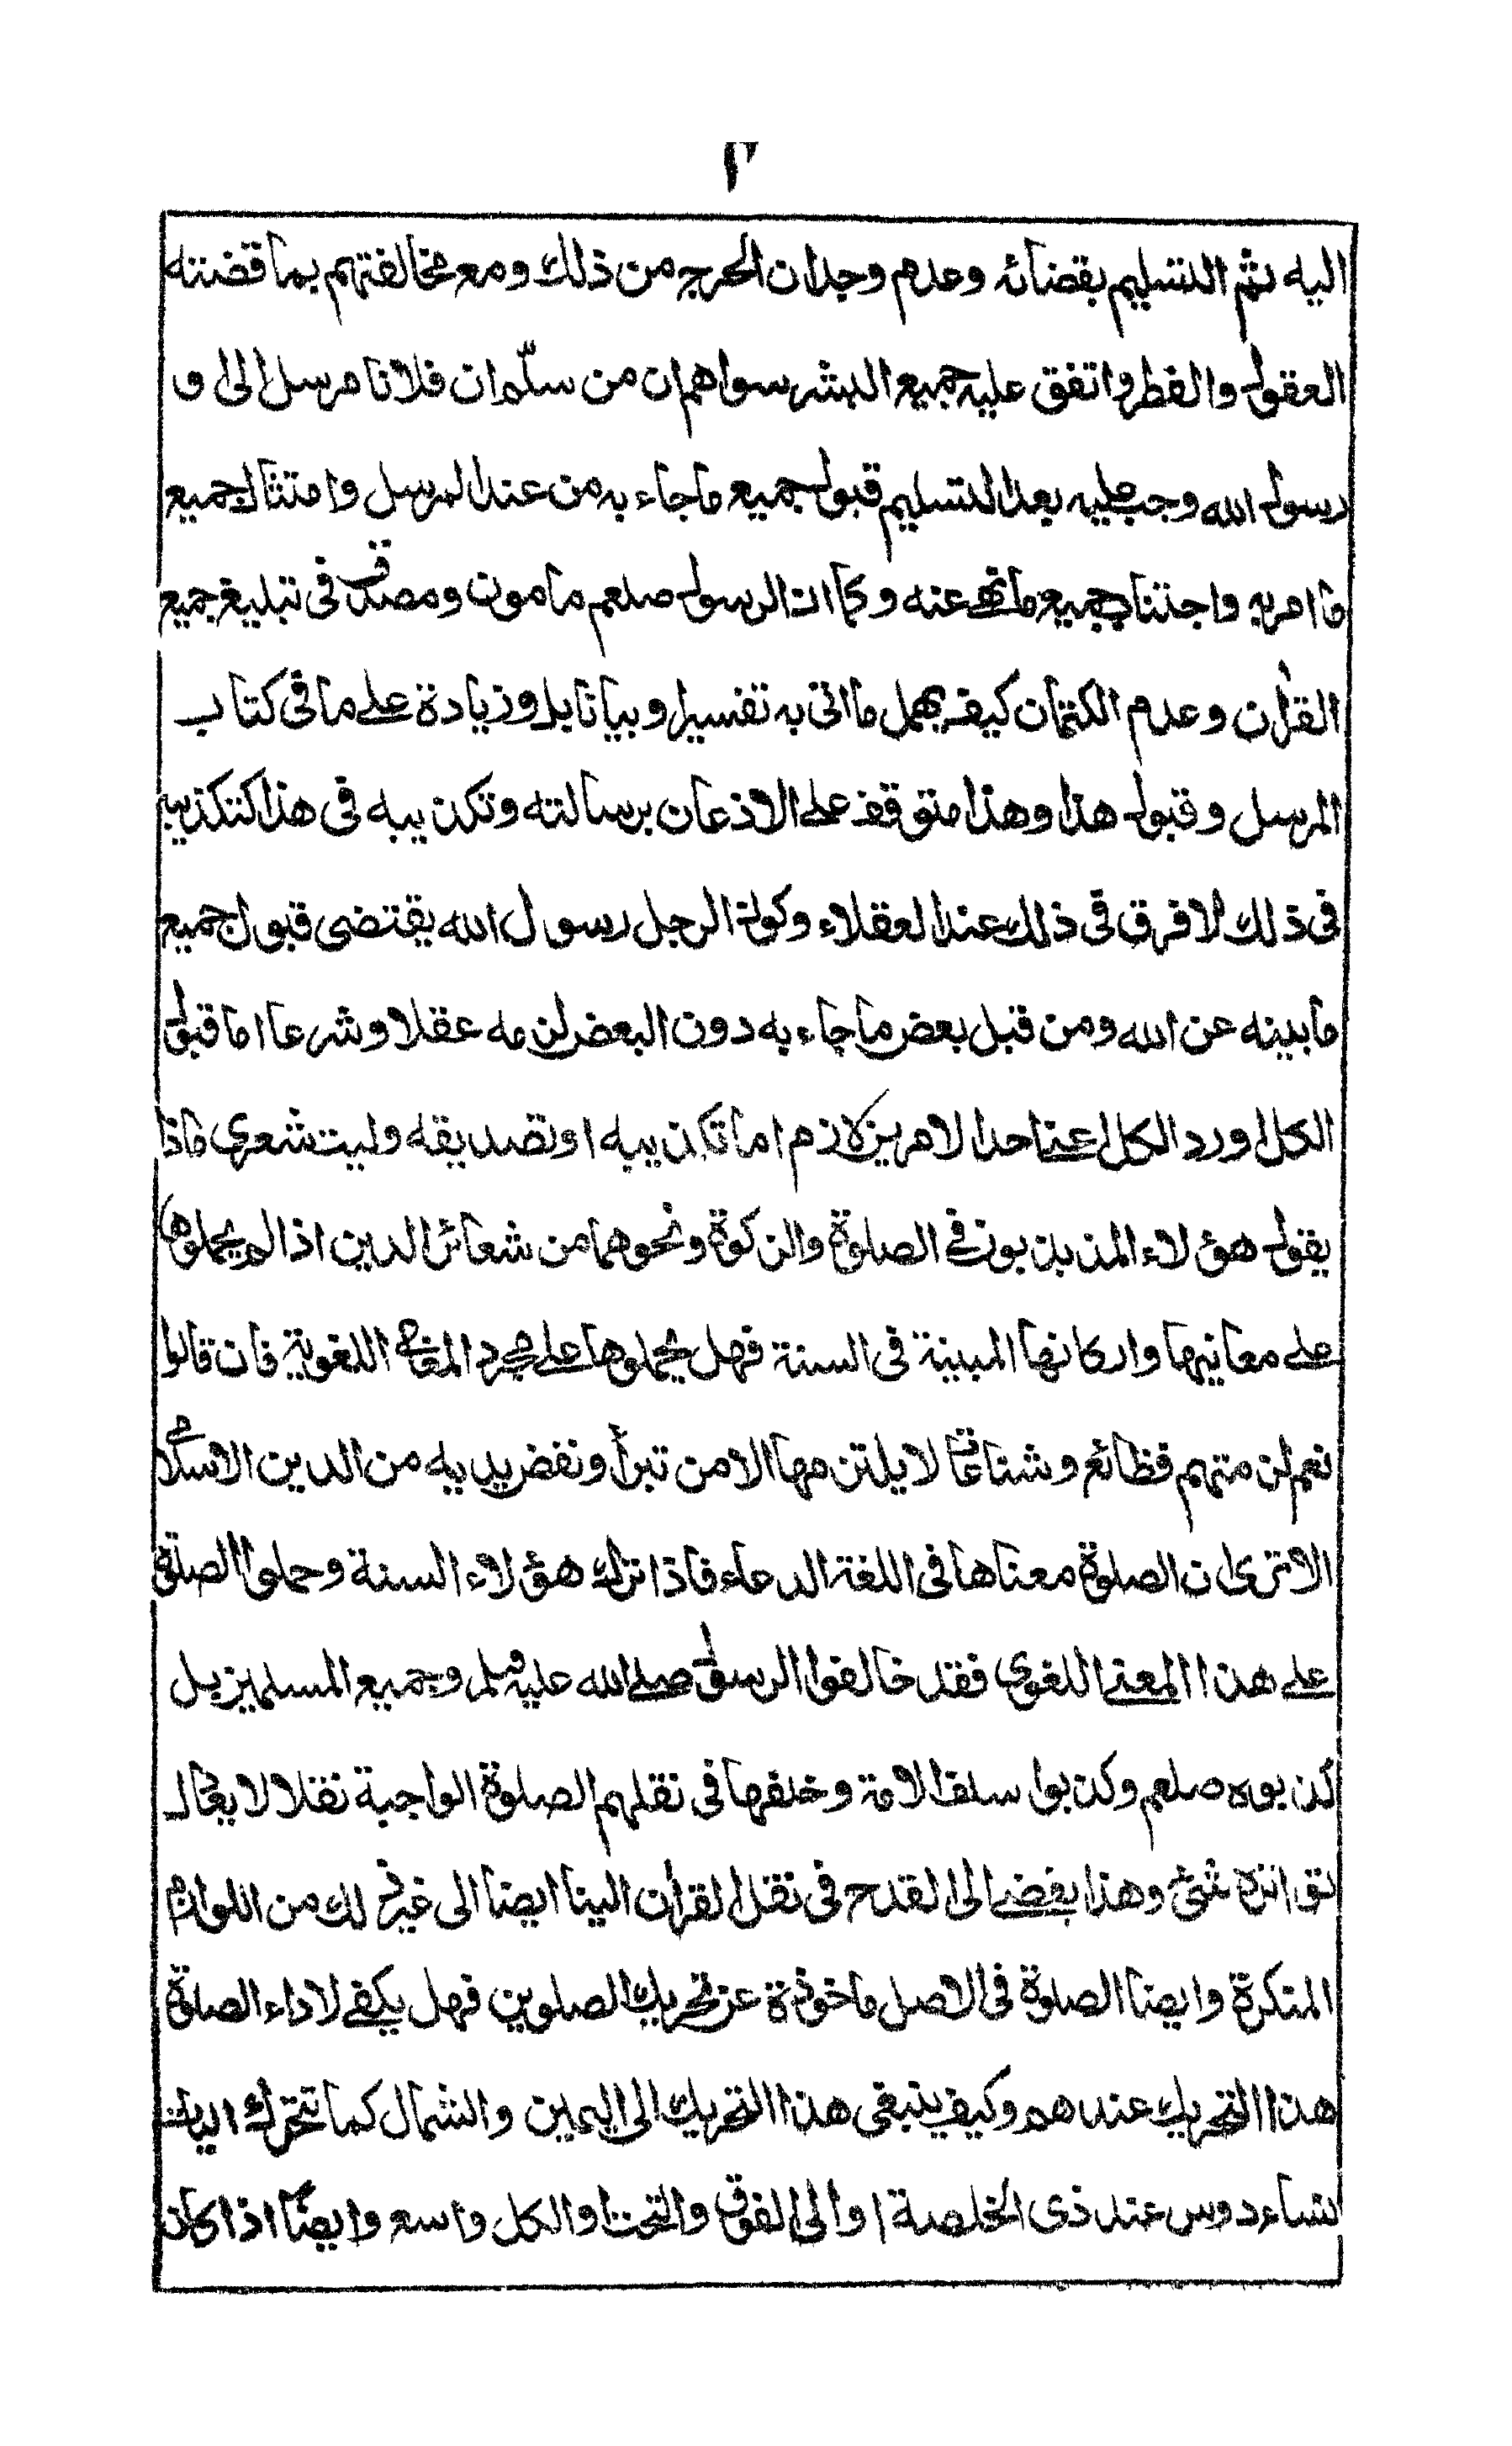 ٢
اليه ثم التسليم بقضائه وعدم وجدان الحرج من ذلك ومع مخالفتهم بما قضته
العقول والفطر واتفق عليه جميع البشر سواهم ان من سلّم ان فلانا مرسل الى و
رسول الله وجب عليه بعد التسليم قبول جميع ما جاء به من عند المرسل وامتثال جميع
ما امر به واجتناب جميع ما نهى عنه وكما ان الرسول صلعم مامون ومصدق فى تبليغ جميع
القرآن وعدم الكتمان كيف يهمل ما اتى به تفسيرا وبيانا بل وزيادة على ما فى كتاب
المرسل وقبول هذا وهذا متوقف على الاذعان برسالته وتكذيبه فى هذا كتكذيبه
فى ذلك لا فرق فى ذلك عند العقلاء وكون الرجل رسول الله يقتضى قبول جميع
ما بينه عن الله ومن قبل بعض ما جاء به دون البعض لزمه عقلا وشرعا اما قبول
الكل او رد الكل اعنى احد الامرين لازم اما تكذيبه او تصديقه وليت شعرى ماذا
يقول هؤلاء المذبذبون فى الصلوة والزكوة ونحوهما من شعائر الدين اذا لم يحملوها
على معانيها واركانها المبينة فى السنة فهل يحملوها على مجرد المعانى اللغوية فان قالوا
نعم لزمتهم فظائع وشنائع لا يلتزمها الا من تبرأ ونفض يديه من الدين الاسلامى
الا ترى ان الصلوة معناها فى اللغة الدعاء فاذا ترك هؤلاء السنة وحملوا الصلوة
على هذا المعنى اللغوى فقد خالفوا الرسول صلى الله عليه وسلم وجميع المسلمين بل
كذبوه صلعم وكذبوا سلف الامة وخلفها فى نقلهم الصلوة الواجبة نقلا لا يخال
تواتره شئ وهذا يفضى الى القدح فى نقل القرآن الينا ايضا الى غير ذلك من اللوازم
المنكرة وايضا الصلوة فى الاصل ماخوذة عن تحريك الصلوين فهل يكفى لاداء الصلوة
هذا التحريك عندهم وكيف ينبغى هذا التحريك الى اليمين والشمال كما تتحرك اليات
نساء دوس عند ذى الخلصة او الى الفوق والتحت او الكل واسع وايضا اذا كان